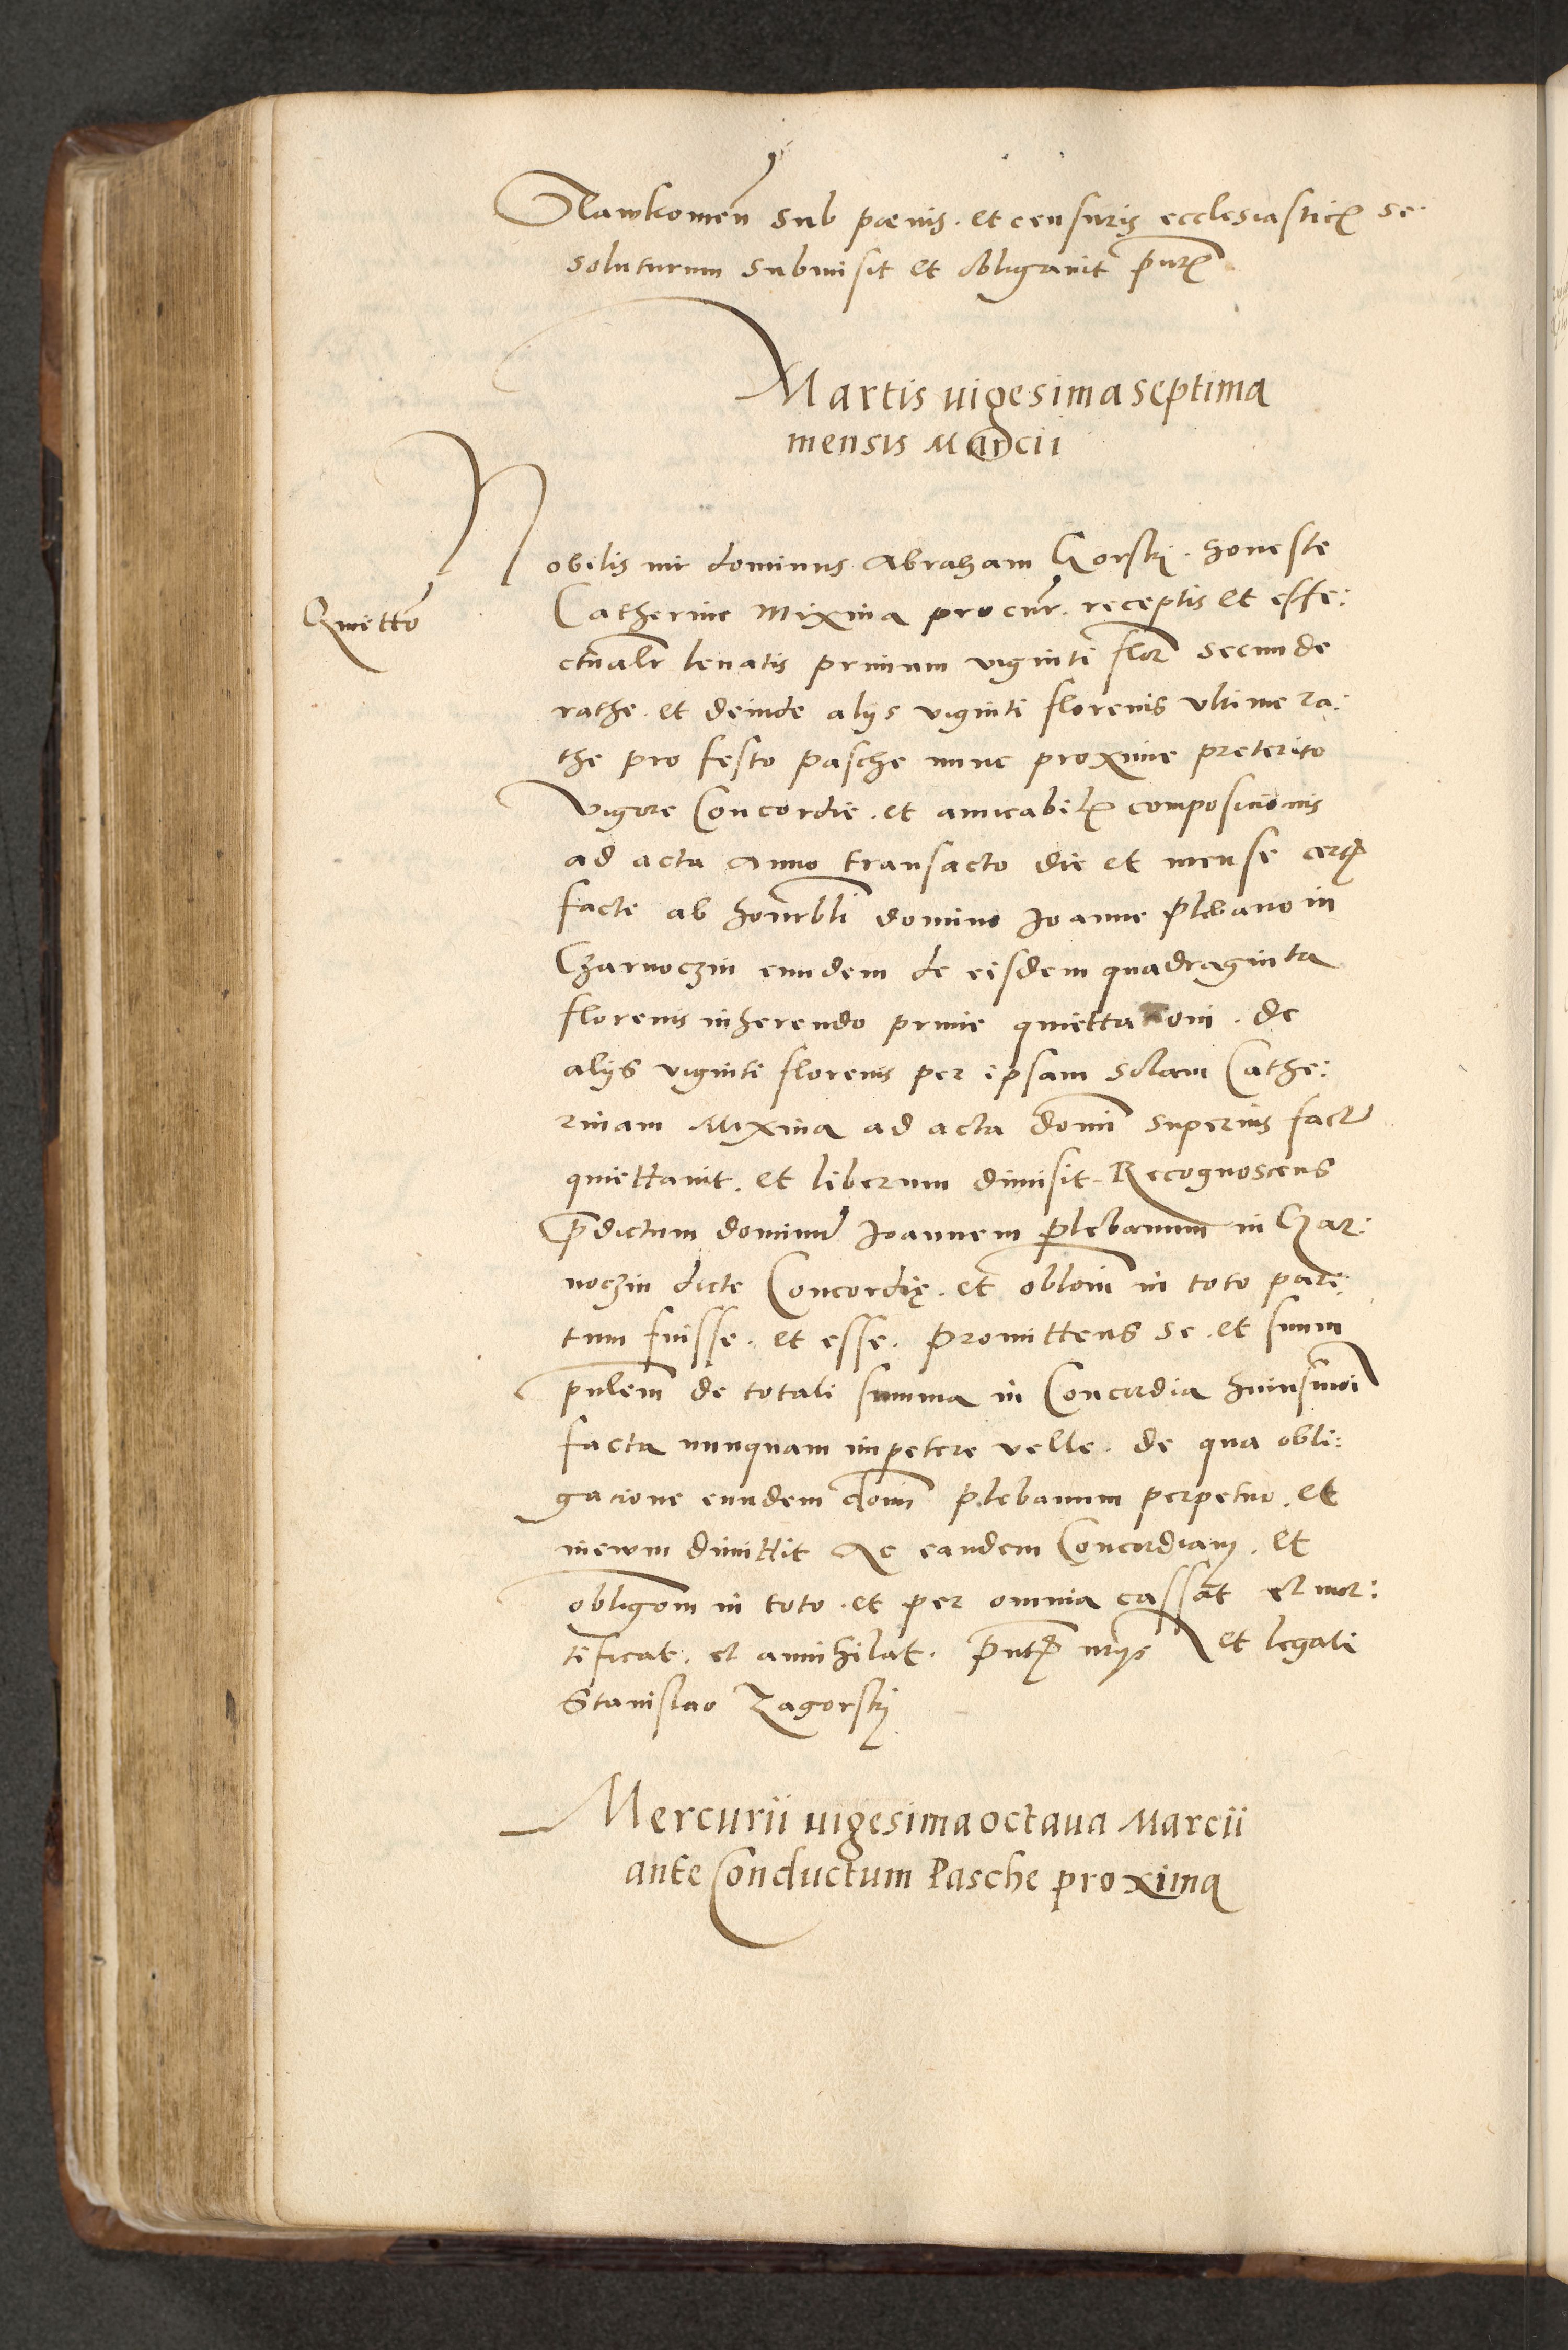 Slawkomien̄ sub pœnis. et censuris ecclesiasticꝭ se
soluturum submisit et obligavit pñtꝭ
Martis vigesima septima
mensis Marcii
Nobilis vir dominus Abraham Gorskj. honeste
Quiettō
Catherine Mixina procur̄. receptis et effe:
ctualr̄ levatis primum viginti flor̄ secunde
rathe. et deinde alijs viginti florenis ultime ra:
the pro festo pasche nunc proxime preterito
vigore Concordie. et amicabilꝭ compositionis
ad acta Anno transacto die et mense certꝭ
facte ab honrbli domino Joanne plebano in
Czarnoczin eundem de eisdem quadraginta
florenis inherendo prime quiettationi. de
alijs viginti florenis per ipsam solam Cathe:
rinam Mixina ad acta domi superius factū
quiettavit. et liberum dimisit. Recognoscens
p̄dictum dominū Joannem plebanum in Czar:
noczin dicte Concordię. et oblōni in toto pari:
tum fuisse. et esse. promittens se. et suam
p̄nlem de totali summa in Concordia huiusmōi
facta nunquam impetere velle. de qua obli:
gatione eundem dom̄ plebanum perpetuo. et
in evum dimittit Ac eandem Concordiam. et
obligōm in toto. et per omnia cassat et mor:
tificat. et annihilat. p̄ntꝭ mgrs et legali
Stanislao Zagorskj
Mercurii vigesima octava Marcii
ante Conductum Pasche proxima